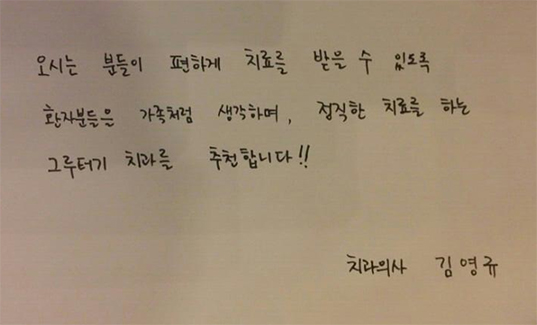 오시는 분들이 편하게 치료를 받을 수 있도록
환자분들은 가족처럼 생각하며, 정직한 치료를 하는
그루터기 치과를 추천합니다!!
치과의사 김영규